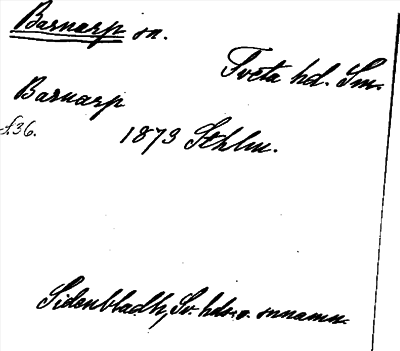 Barnarp sn.
Tveta hd. Sm.
Barnarp
s. 36.
1873 Sthlm.
Sidenbladh, Sv. hds- o. snnamn.